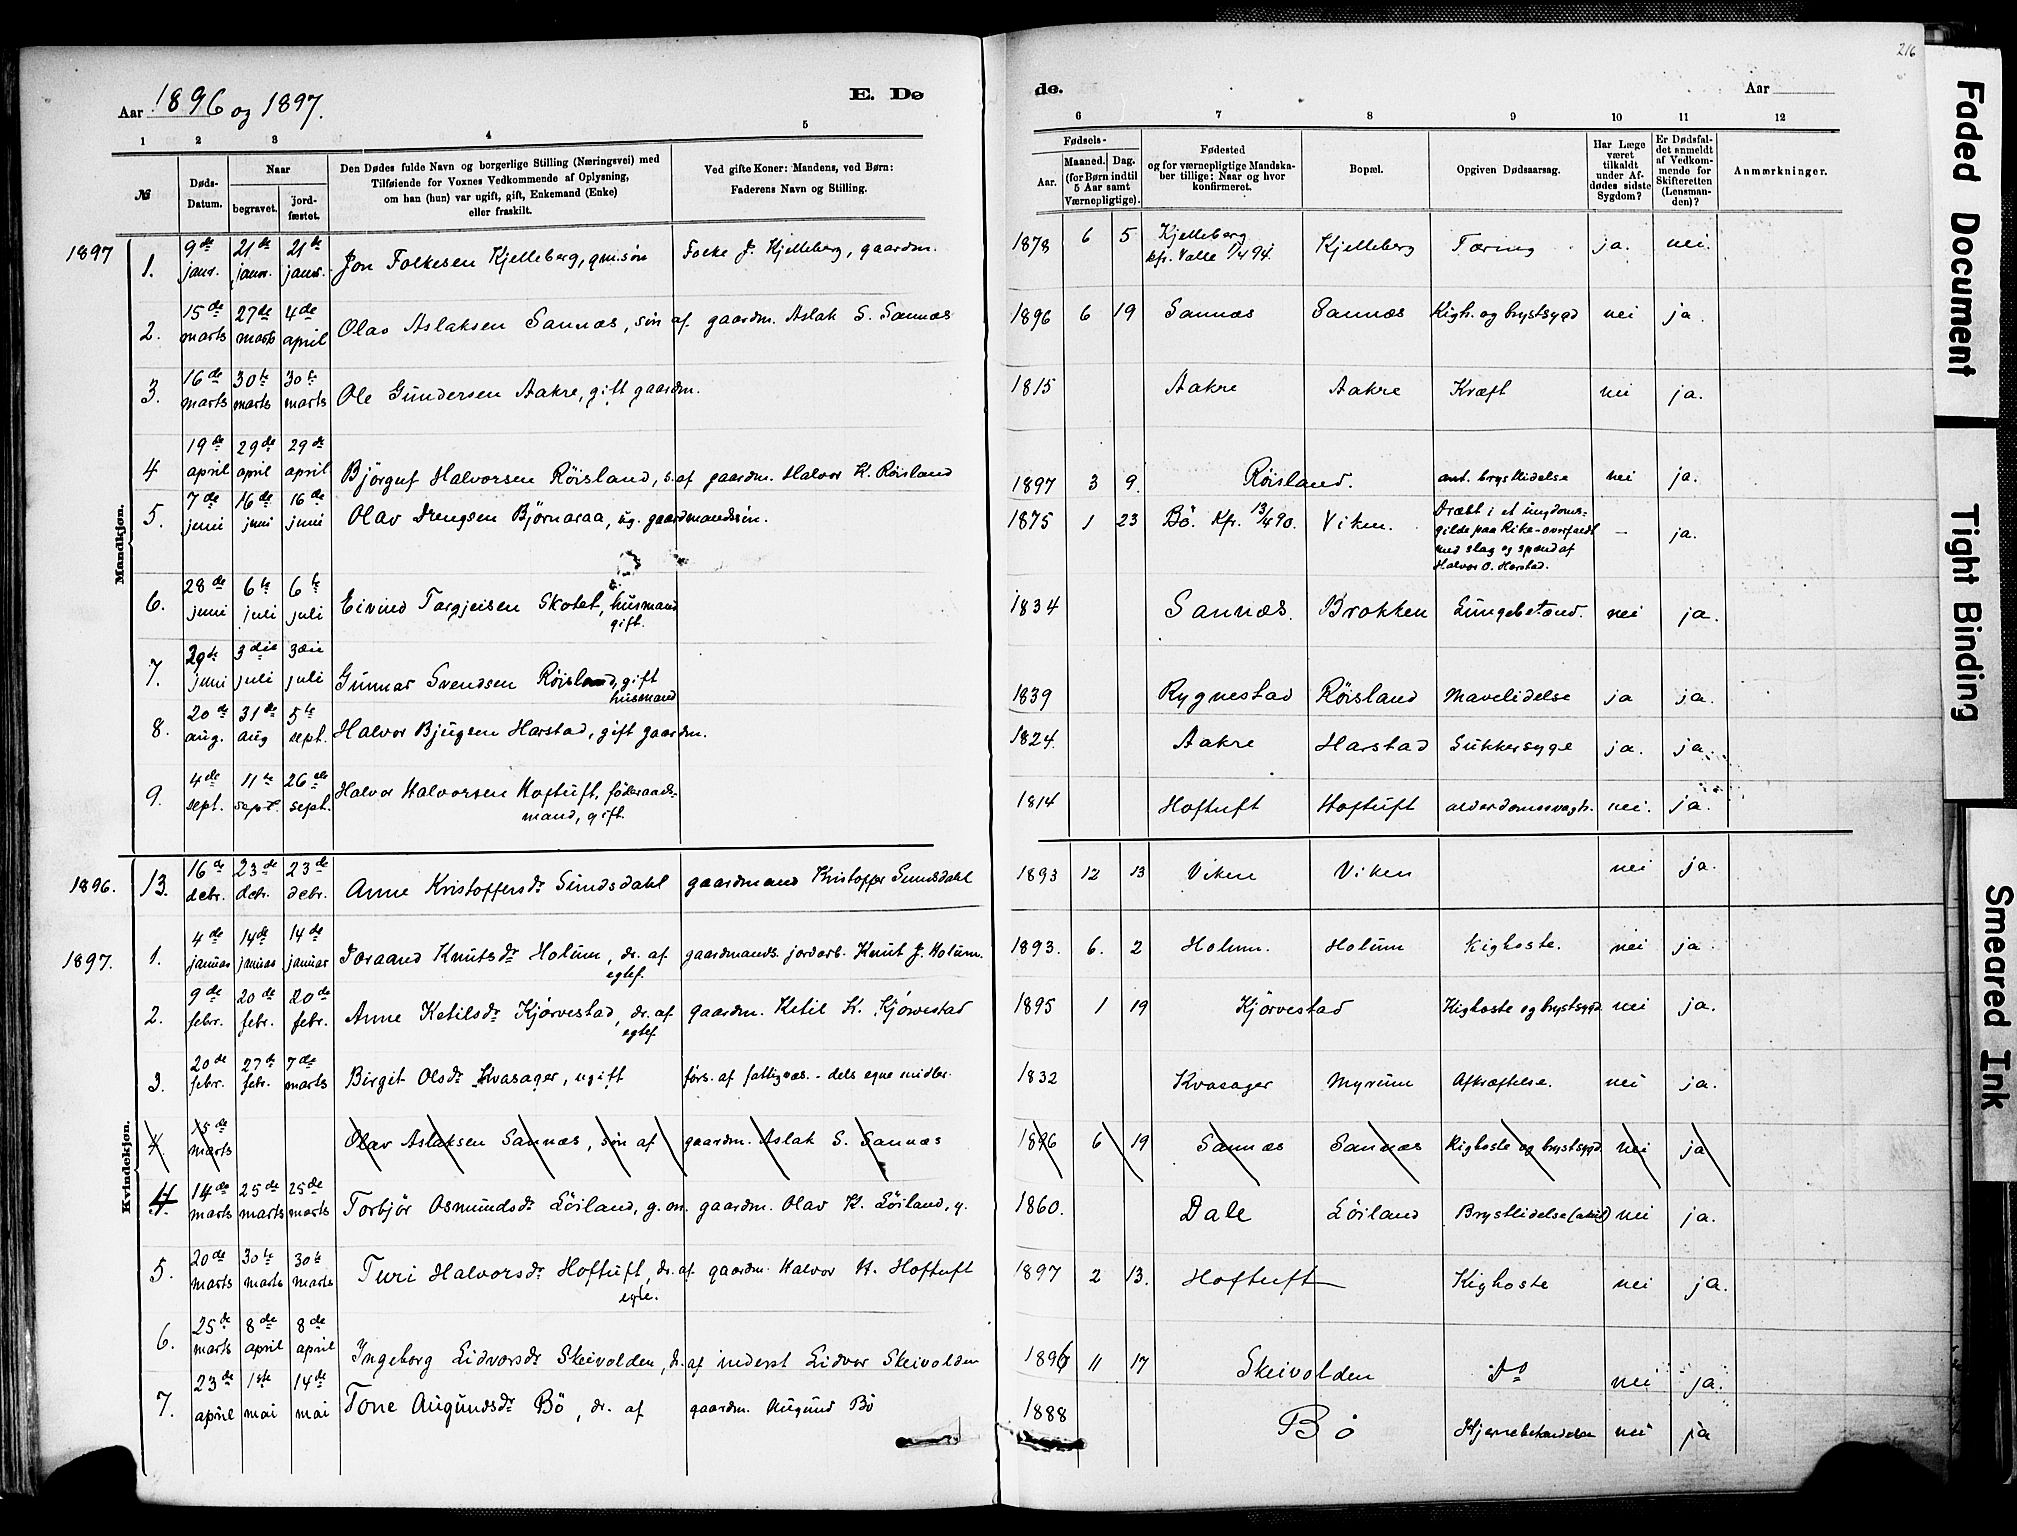 216
Aar 1896 og 1897.
E. Dø
de.
Aar
1 2 3 4 5 6 7 8 9 10 11 12
№
Døds-Datum.
Naar
begravet.
jord-fæstet.
Den Dødes fulde Navn og borgerlige Stilling (Næringsvei) med
Tilføiende for Voxnes Vedkommende af Oplysning,
om han (hun) var ugift, gift, Enkemand (Enke)
eller fraskilt.
Ved gifte Koner: Mandens, ved Børn:
Faderens Navn og Stilling.
Fødsels-
Aar.
Maaned. Dag.
(for Børn indtil
5 Aar samt
Værnepligtige).
Fødested
og for værnepligtige Mandska-
ber tillige: Naar og hvor
konfirmeret.
Bopæl.
Opgiven Dødsaarsag.
Har Læge
været
tilkaldt
under Af-
dødes sidste
Sygdom?
Er Dødsfal-
det anmeldt
af Vedkom-
mende for
Skifteretten
(Lensman-
den)?
Anmærkninger.
Mandkjøn.
1897 1. 9de janr. 21de janr. 21de janr. Jon Folkesen Kjelleberg, gm.søn Folke J. Kjelleberg, gaardm. 1878 6 5 Kjelleberg kfr. Valle 1/4 94. Kjelleberg Tæring ja. nei.
2. 15de marts 27de marts 4de april Olav Aslaksen Sannæs, søn af gaardm. Aslak S. Sannæs 1896 6 19 Sannæs Sannæs Kigh. og brystsygd nei ja.
3. 16de marts 30te marts 30te marts Ole Gundersen Aakre, gift gaardm. 1815 Aakre Aakre Kræft nei ja.
4 19de april 29de april 29de april Björguf Halvorsen Röisland, s. af gaardm. Halvor K. Röisland 1897 3 9. Röisland. ant. brystlidelse nei ja.
5. 7de juni 16de juni 16de juni Olav Drengsen Björnaraa, ug. gaardmandssön. 1875 1 23 Bö. Kfr. 13/4 90. Viken. Dræbt i et ungdoms-
gilde paa Rike - overfaldt
med slag og spænd af
Halvor O. Harstad. – ja.
6. 28de juni 6te juli 6te juli Eivind Targjeisen Skotet, husmand gift. 1834 Sannæs. Brokken Lungebetænd. nei ja.
7. 29de juni 3die juli 3die juli Gunnar Svendsen Röisland, gift husmand 1839 Rygnestad Röisland Mavelidelse ja ja.
8. 20de aug. 31de aug 5te sept. Halvor Bjugsen Harstad, gift gaardm. 1824. Aakre Harstad Sukkersyge ja. ja.
9. 4de sept. 11te sept. 26de sept. Halvor Halvorsen Hoftuft, föderaads-
mand, gift. 1814 Hoftuft Hoftuft alderdomssvagh. nei. ja.
Kvindekjøn.
1896. 13. 16de debr. 23de debr. 23de debr. Anne Kristoffersdr Sundsdahl gaardmand Kristoffer Sundsdahl 1893 12 13 Viken Viken nei ja.
1897. 1. 4de januar 14de januar 14de januar Joraand Knutsdr Holum, dr. af egtef. gaardmands. jordarb. Knut J. Holum. 1893. 6. 2 Holum. Holum Kighoste. nei ja
2. 9de febr. 20de febr. 20de febr. Anne Ketilsdr Kjörvestad, dr. af egtef. gaardm. Ketil K. Kjörvestad 1895 1 19 Kjörvestad Kighoste og brystsygd nei ja.
3. 20de febr. 27de febr. 7de marts Birgit Olsdr Kvasager, ugift förs. af fattigvæs. - dels egne midler. 1832 Kvasager Myrum Afkræftelse. nei ja.
4. 15de marts Olav Aslaksen Sannæs, sön af gaardm. Aslak S. Sannæs 1896 6 19 Sannæs Sannæs Kighoste og brystsygd. nei ja
4. 14de marts 25de marts 25de marts Torbjör Osmundsdr Löiland, g. m. gaardm. Olav K. Löiland, g. 1860. Dale Löiland Brystlidelse nei ja.
5. 20de marts 30te marts 30te marts Turi Halvorsdr Hoftuft, dr. af egte. gaardm. Halvor H. Hoftuft 1897 2 13. Hoftuft Kighoste nei ja.
6. 25de marts 8de april 8de april Ingeborg Lidvorsdr Skeivolden, dr. af inderst Lidvor Skeivolden 1896 11 17 Skeivolden Do nei ja.
7. 23de april 1ste mai 14de mai Tone Augundsdr Bö, dr. af gaardm. Augund Bö 1888 Bö nei ja
Faded Document
Tight Binding
Smeared Ink